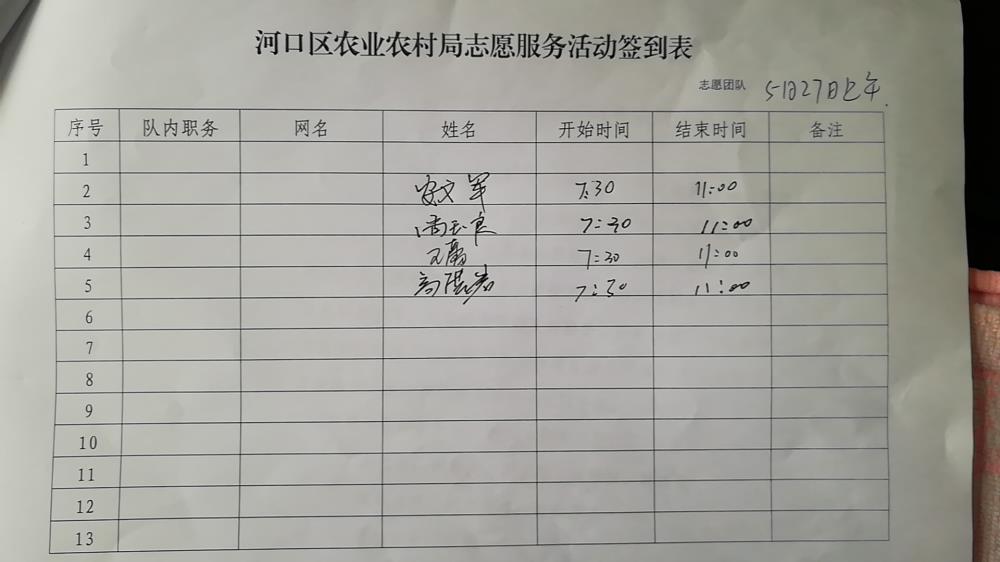 河口区农业农村局志愿服务活动签到表
志愿团队 5月27日上午
序号 队内职务 网名 姓名 开始时间 结束时间 备注
1
2 安文军 7:30 11:00
3 7:30 11:00
4 7:30 11:00
5 7:30 11:00
6
7
8
9
10
11
12
13